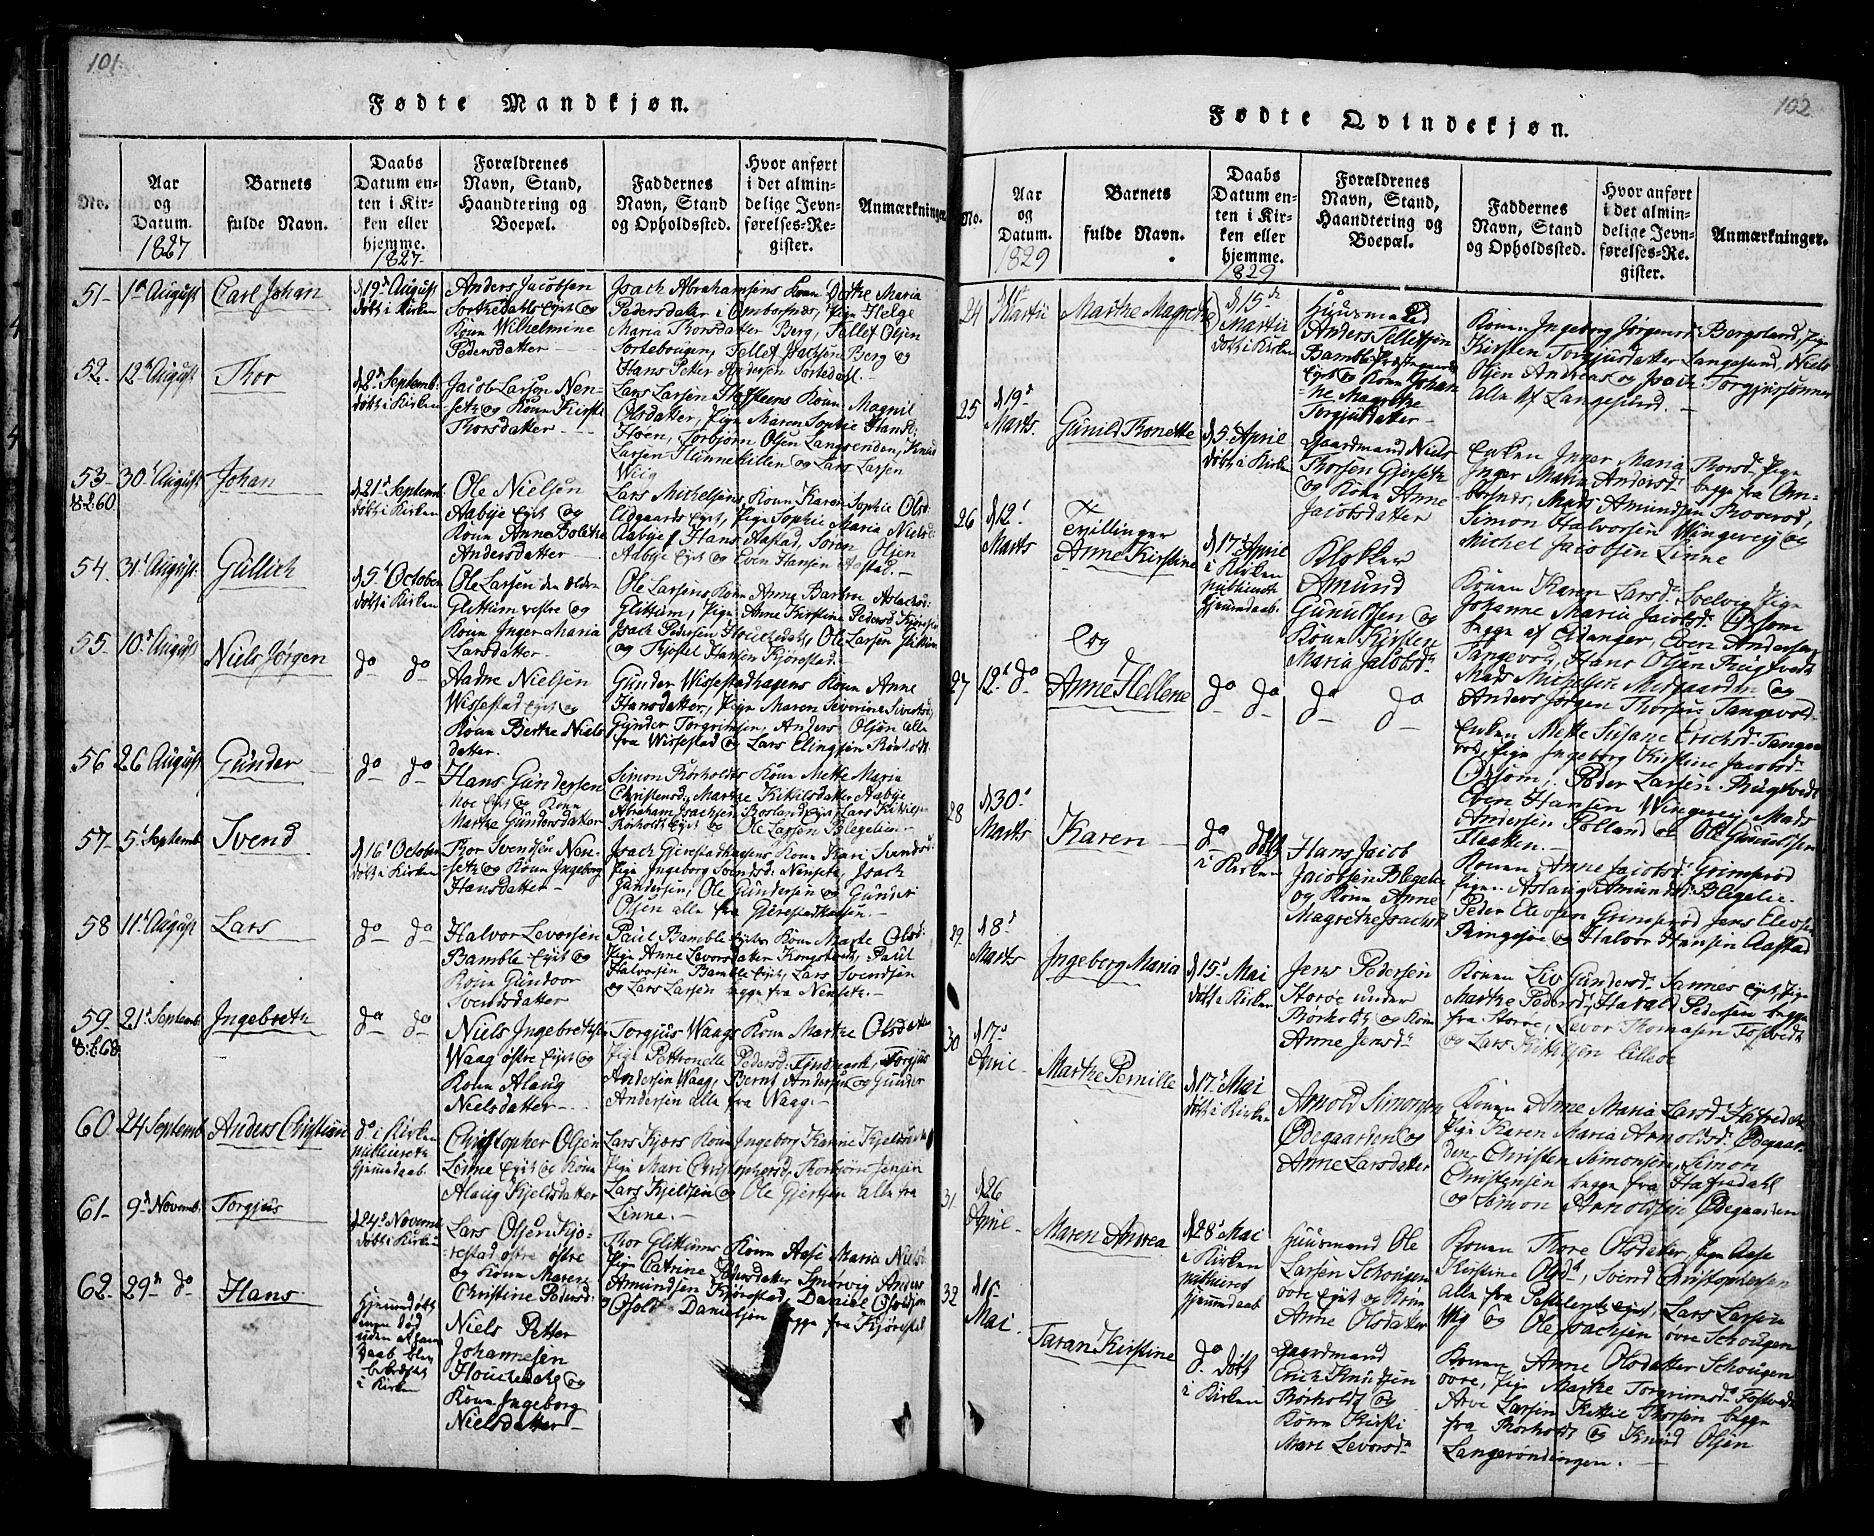 101.
Fødte Mandkjøn.
No.
Aar
og
Datum.
1827
Barnets
fulde Navn.
Daabs
Datum en-
ten i Kir-
ken eller
hjemme.
1827.
Forældrenes
Navn, Stand,
Haandtering og
Boepæl.
Faddernes
Navn, Stand
og Opholdssted.
Hvor anført
i det almin-
delige Jevn-
førelses-Re-
gister.
Anmærkninger.
51-
1d August
Carl Johan
d 19d August
døbt i Kirken
Anders Jacobsen
Tortedahls Eyet og
Konen Wilhelmine
Pedersdatter
Isach Abrahamsens Kone Dorthe Maria
Pedersdatter i Omborsnes, Pige Helge
Maria Thorsdatter Berg, Tellef Olsen
Tortebougen, Tellef Isachsen Berg og
Hans Petter Andersen Tortedal.
52.
12d August
Thor
d 2d Septemb:
døbt i Kirken
Jacob Larsen Nen-
seth og Konen Kirsti
Thorsdatter
Lars Larsen Kone Magnil
Olsdatter, Pige Maren Sophie Hansd.
Hoen, Torbjørn Olsen Langrenden, Knud
Larsen Hunnekillen og Lars Larsen
Wiig
53-
8260
30d August
Johan
d 21d Septemb
døbt i Kirken
Ole Nielsen
Aabye Eyet og
Konen Anne Bolette
Andersdatter
Lars Michelsens Kone Karen Sophie Olsd.
Eldgaards Eyet, Pige Sophie Maria Nielsd
Aabye, Hans Aastad, Søren Olsen
Aabye Eyet og Even Hansen Aastad.
54.
31d August.
Gullich
d 5d October
døbt i Kirken
Ole Larsen den ældre
Glittum vestre og
Konen Inger Maria
Larsdatter
Ole Larsens Kone Anne Barbro Aslachsd:
Glittum, Pige Anne Kirstine Pedersd Kjørestad
Isach Pedersen Houchedahl, Ole Larsen Glittum
og Kjøstel Hansen Kjørestad.
55.
10d August
Niels Jørgen
do do
Aadne Nielsen
Wissestad Eyet og
Konen Berthe Niels
datter.
Gunder Wissestadhagens Kone Anne
Hansdatter, Pige Maren Severine Sivertsd,
Gunder Torgrimsen, Anders Olsen alle
fra Wissestad og Lars Elingsen Rørholt.
56
26 August
Gunder
do do
Hans Gundersen
Moe Eyet og Kone
Marthe Gundersdatter
Simon Rørholdts Kone Mette Maria
Christensd: Marthe Kittilsdatter Aabye
Abraham Isachsen Rosland Eyet Lars Kittilsen
Rørholt Eyet og Ole Larsen Blegelien
57-
5d Septemb
Svend
d 16d October
døbt i Kirken
Thor Svendsen Nen-
seth og Konen Ingeborg
Hansdatter
Isach Gjerestadkaasens Kone Kari Svendsd:
Pige Ingeborg Svendsd: Nenseth, Isach
Gundersen, Ole Gundersen og Gunder
Olsen alle fra Gjerestadkaasen.
58
11d August
Lars
do do
Halvor Levorsen
Bamble Eyet og
Konen Gundor
Svendsdatter
Paul Bamble Eyets Kone Marthe Olsd:
Pige Anne Levorsdatter Kongsholt, Paul
Halvorsen Bamble Eyet, Lars Svendsen
og Lars Larsen begge fra Nenseth.
59-
8:268.
21d Septemb
Ingebreth
do do
Niels Ingebrethsen
Waag østre Eyet og
Konen Aslaug
Nielsdatter
Torgjus Waags Kone Marthe Olsdatter
Pige Petronelle Pedersd: Findmark, Torgjus
Andersen Waag, Bernt Andersen og Gunder
Andersen alle fra Waag
60
24 Septemb
Anders Christian
do i Kirken
publiceret
hjemmdaab.
Christopher Olsen
Linne Eyet og Kone
Aslaug Kjeldsdatter
Lars Kjørs Kone Ingeborg Hanne Kjeldsd
Pige Mari Christophersd: Thorbjørn Jensen
Lars Kjeldsen og Ole Gjertsen alle fra
Linne.
61-
9d Novemb.
Torgjus
d 24d Novemb
døbt i Kirken
Lars Olsen Kjø-
restad østre
og Konen Maren
Christine Pedersd:
Thor Glittums Kone Aase Maria Nielsd
Pige Catrine Pedersdatter
Amundsen Kjørestad, Daniel Osoldsen
og Osold Danielsen begge fra Kjørestad
62.
29d do
Hans
Hjemmdøbt
men død
uden at ham
Daab blev
bekræftet
i Kirken
Niels Petter
Johannesen
Houchedahl og
Konen Ingeborg
Nielsdatter
102
Fødte Qvindekjøn.
No.
Aar
og
Datum.
1829
Barnets
fulde Navn.
Daabs
Datum en-
ten i Kir-
ken eller
hjemme.
1829
Forældrenes
Navn, Stand,
Haandtering og
Boepæl.
Faddernes
Navn, Stand
og Opholdssted.
Hvor anført
i det almin-
delige Jevn-
førelses-Re-
gister.
Anmærkninger.
24
Martii
Marthe Magrethe
d 15de
Martii
døbt i Kirken
Huusmand
Anders Tellefsen
Bamble Præstegaards
Eyet og Kone Johan
ne Magrethe
Torgjusdatter
Konen Ingeborg Jørgensd: Bergsland, Pige
Kirsten Torgjusdatter Langesund, Niels
Andreas og Isach Torgjussønner
alle af Langesund.
25
d 19d
Marts.
Gunild Tonette
d 5d April
døbt i Kirken
Gaardmand Niels
Thorsen Gjerseth
og Kone Anne
Jacobsdatter
Enken Inger Maria Thorsd: Pige
Inger Maria Andersd: begge fra Om-
borsnes, Mads Amundsen Roverød,
Simon Halvorsen Wingereij og
Michel Jacobsen Linne
26
d 12d
Marts
Tvillinger
Anne Kirstine
d 17d April
i Kirken
publiceret
hjemmdaab.
Klokker
Amund
Gunulfsen og
Kone Kirstine
Maria Jacobsd:
Konen Karen Larsd: Solvig, Pige
Johanne Maria Jacobsd: Ohrsom
begge af Eidanger, Even Andersen
Tangevold, Hans Olsen Rugtvedt
Mads Michelsen Midgaarden og
Anders Jørgen Thorsen Tangevold
og
27
12d do
Anne Hellene
do do
do do
Enken Mette Susane Erichsd: Tange
vol, Pige Ingeborg Kirstine Jacobsd:
Ohrsom, Peder Larsen Rugtvedt
Even Hansen Wingereij, Mads
Andersen Rolland og Ole Gunulfsen
Flaaten.
28
d 30d
Marts
Karen
do døbt
i Kirken
Hans Jacob
Jacobsen Blegelie
og Kone Anne
Magrethe Isachsd
Konen Anne Jacobsd: Grimsrød
Pigen Aslaug Amundsd: Blegelie.
Peder Elevsen Grimsrød, Jens Elevsen
Ringsjøe og Halvor Hansen Aastad
29.
d 8d
Marts
Ingeborg Maria
d 15d Mai
døbt i Kirken
Jens Pedersen
Storøe under
Rørholt og Kone
Anne Jensd:
Konen Liv Gundersd: Sannes Eyet, Pige
Marthe Pedersd, Harald Pedersen begge
fra Storøe, Levor Thomasen Fostvedt
og Lars Kittelsen Lilleøe
30
d 17d
April
Marthe Pernille
d 17d Mai
døbt i Kirken
Arnold Simonsen
Ødegaarden og
Anne Larsdatter
Konen Anne Maria Larsd:
Pige Karen Maria Arnoldsd: Ødegaar-
den, Christen Simonsen, Simon
Christensen begge fra Hafsundahl
og Simon Arnoldsen Ødegaarden
31.
d 26
April
Maren Andrea
d 28d Mai
i Kirken
publiceret
hjemmdaab
Huusmand Ole
Larsen Schougen
øvre Eyet og Kone
Anne Olsdatter
Konen Thore Olsdatter, Pige Aase
Kirstine Olsd, Svend Christophersen
alle fra Eyet, Lars Larsen
Wiig og Ole Isachsen øvre Schougen
32
d 10
Mai.
Taran Kirstine
do døbt
i Kirken
Gaardmand
Erich Knudsen
Rørholt og
Kone Kirsti
Mari Levorsd
Konen Anne Olsdatter Schougen
øvre, Pige Marthe Torgrimsd: Fostvedt
Arve Larsen, Kittil Thorsen begge
fra Rørholt og Knud Olsen
Langerøndingen.